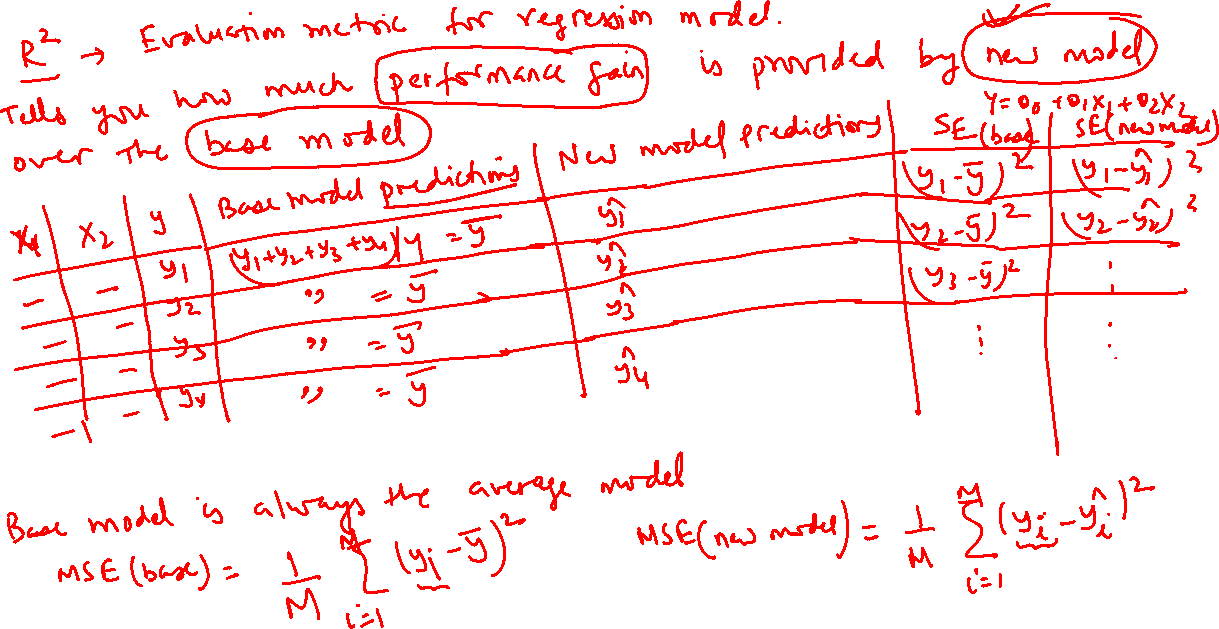 R² → Evaluation metric for regression model.
Tells you how much performance gain is provided by new model
over the base model
Y = θ₀ + θ₁X₁ + θ₂X₂
X₁ X₂ y Base model predictions New model predictions SE (base) SE (new model)
– – y₁ (y₁+y₂+y₃+y₄)/4 = ȳ ŷ₁ (y₁-ȳ)² (y₁-ŷ₁)²
– – y₂ " = ȳ ŷ₂ (y₂-ȳ)² (y₂-ŷ₂)²
– – y₃ " = ȳ ŷ₃ (y₃-ȳ)² ⋮
– – y₄ " = ȳ ŷ₄ ⋮ ⋮
Base model is always the average model
MSE (base) = 1/M Σ_{i=1}^{M} (yᵢ - ȳ)² MSE (new model) = 1/M Σ_{i=1}^{M} (yᵢ - ŷᵢ)²